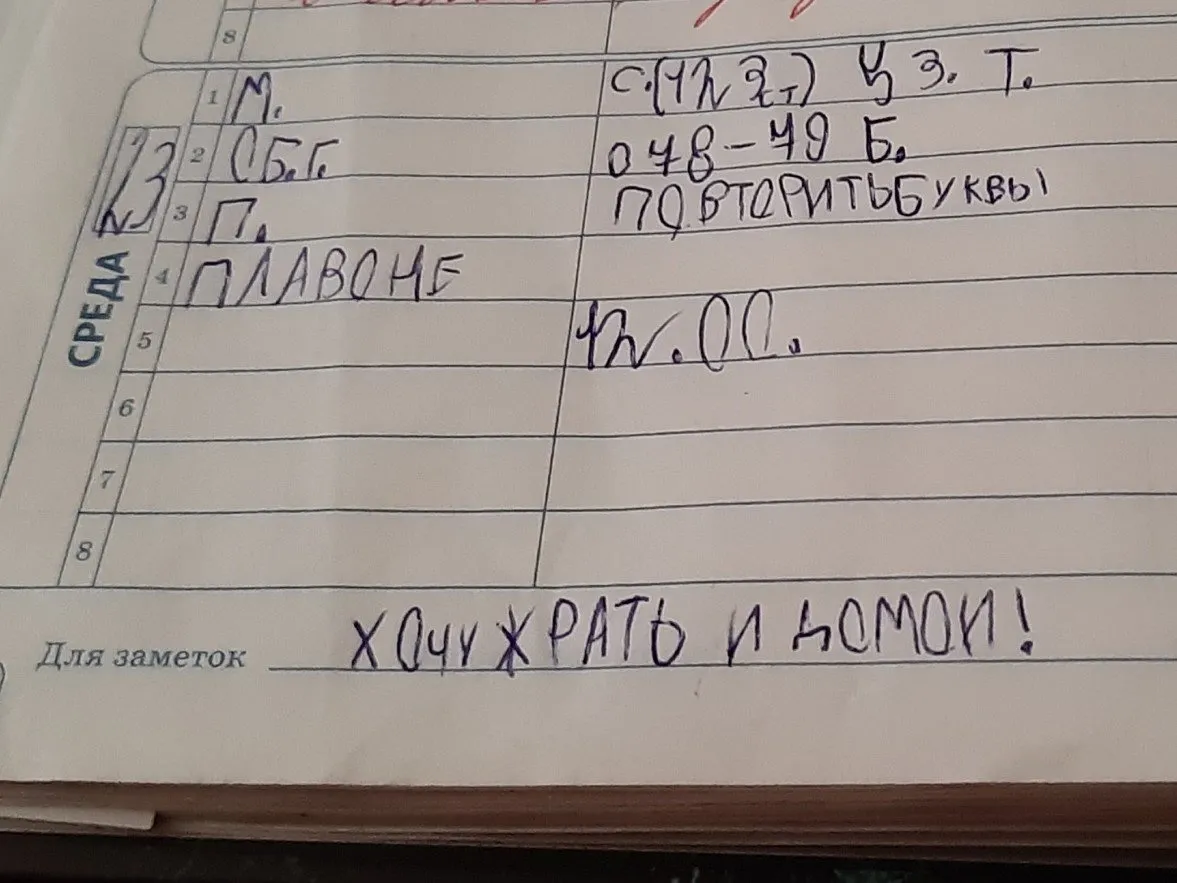 8
СРЕДА
23
1 М. С.(12 З,Т) Ц З. Т.
2 ОБ.Г. О 48-49 Б.
3 П. ПОВТОРИТЬБУКВЫ
4 ПЛАВОНЕ
5 12.00.
6
7
8
Для заметок ХОЧУ ЖРАТЬ И ДОМОЙ!